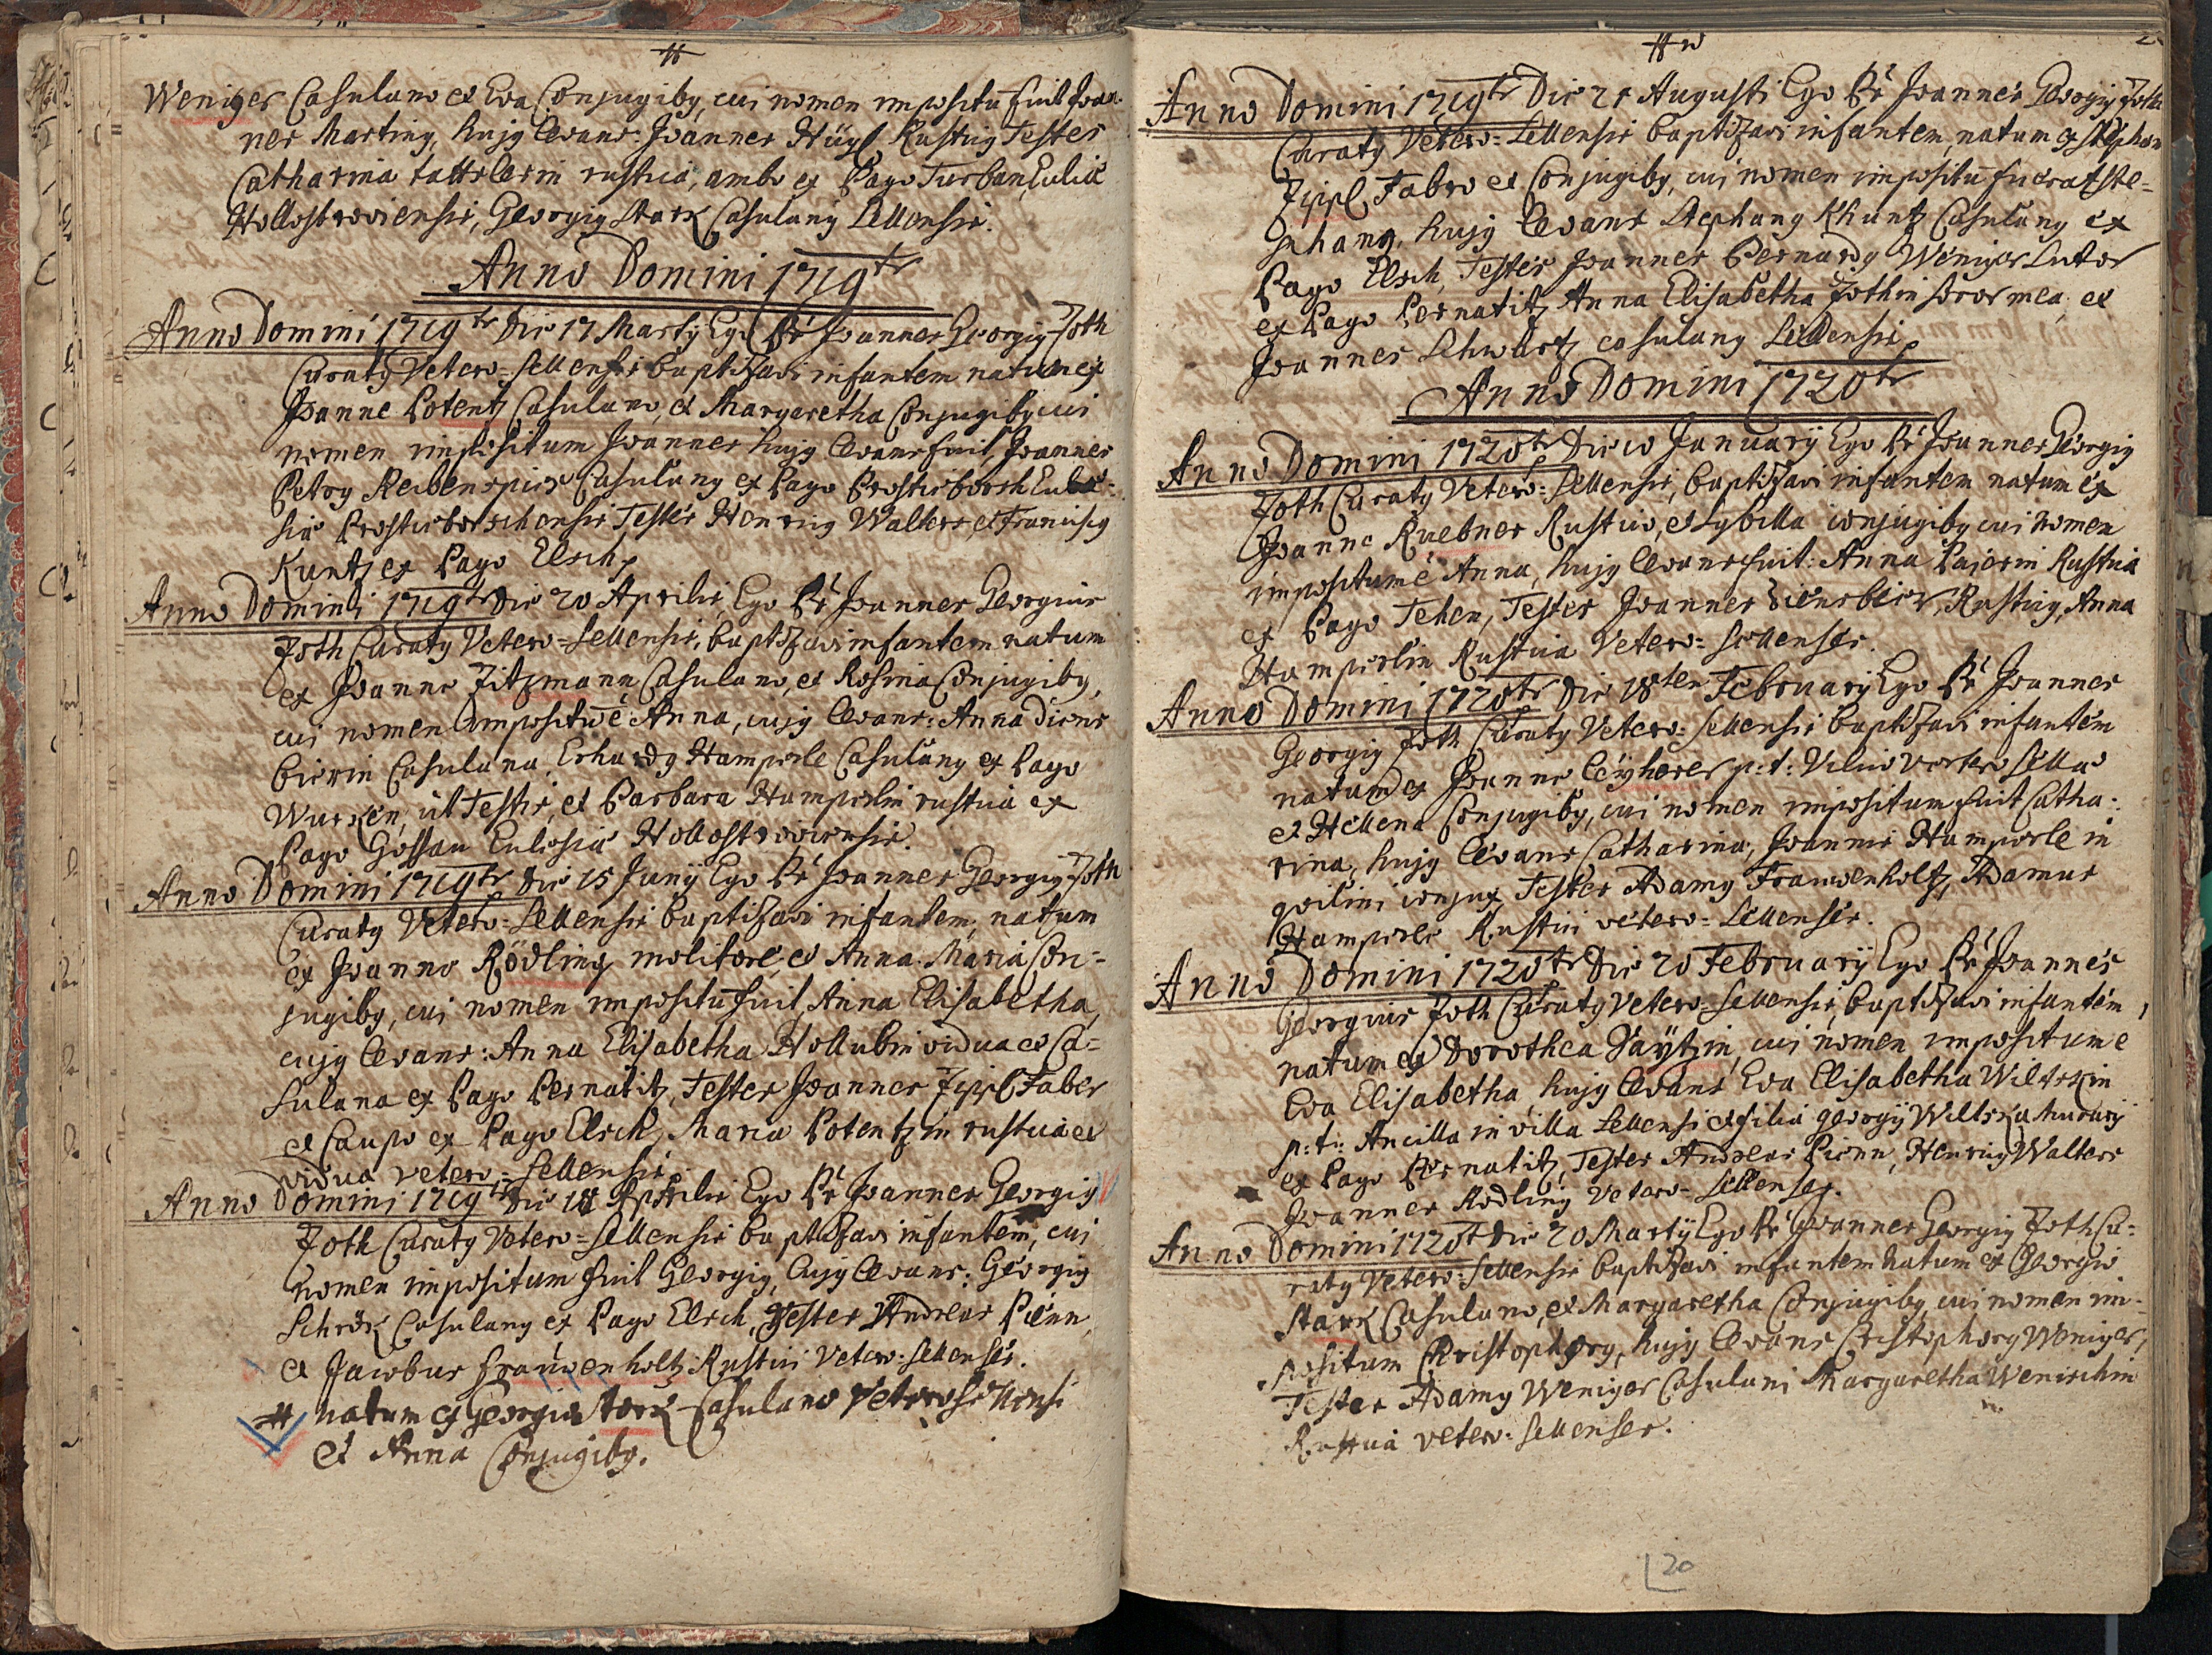 #
Weniger Casulano et Eva Conjugibg, cui nomen impositū fuit Joan-
nes Marting, hujg levans: Joannes Hügl Rusticg Testes
Catharina rustica, ambo ex Pago Turban,
Hollostroviensis, Georgig Stark Casulang Sellensis.
Anno Domini 1719
Anno Domini 1719 Die 17 Martij Ego Pr Joannes Georgig Joth
Curatg Vetero=Sellensis baptizavi infantem natum ex
Joanne Potentz Casulano, et Margaretha Conjugibg cui
nomen impositum Joannes hujg levans fuit, Joannes
Petrg Casulang ex Pago
Testes Henricg Walters, et Franciscg
Kuntz ex Pago Elsch,
Anno Domini 1719 Die 20 Aprilis, Ego Pr Joannes Georgius
Joth Curatg Vetero=Sellensis, baptizavi infantem natum
ex Joanne Fitzmann Casulano, et Rosina Conjugibg,
cui nomen impositū ē Anna, cujg levans: Anna Diens
bierin Casulana, Erhardg Hamperle Casulang ex Pago
Wurken, ut Testis, et Barbara Hamperlin rustica ex
Pago Gossau Hollostroviensis.
Anno Domini 1719 Die 15 Junij Ego Pr Joannes Georgig Joth
Curatg Vetero=Sellensis baptizavi infantem, natum
ex Joanne Rödling molitore, et Anna Maria Con=
jugibg, cui nomen impositū fuit Anna Elisabetha,
cujg levans: Anna Elisabetha Hollubin vidua et Ca=
sulana ex Pago Pernatitz, Testes Joannes Zippl Faber
et Caupo ex Pago Elsch, Maria Potentzin rustica et
vidua vetero=Sellensis.
Anno Domini 1719 Die 18 Aprilis Ego Pr Joannes Georgig
Joth Curatg Vetero=Sellensis baptizavi infantem, cui
nomen impositum fuit Georgig, Cujg levans: Georgig
Schrök Casulang ex Pago Elsch, Testes Andreas Pienn
et Jacobus Frauwenholtz Rustici Vetero=Sellenses.
# natum ex Georgio Stark Casulano Veterosellensi
et Anna Conjugibg.
#
Anno Domini 1719 Die 21 Augusti Ego Pr Joannes Georgig Joth
Curatg Vetero=Sellensis baptizavi infantem, natum ex Stephano
Zippl Fabro et Conjugibg, cui nomen impositū fuerat Ste=
phang, hujg levans Stephang Khuntz Casulang ex
Pago Elsch, Testes Joannes Bernardg Weniger Sutor
ex Pago Pernatitz, Anna Elisabetha Jothin soror mea, et
Joannes Schwartz casulang Sellensis,
Anno Domini 1720
Anno Domini 1720 Die 10 Januarij Ego Pr Joannes Georgig
Joth Curatg Vetero=Sellensis, baptizavi infantem natum ex
Joanne Ruebner Rustico, et Sybilla conjugibg cui nomen
impositum ē Anna, hujg levans fuit: Anna Paierin Rustica
ex Pago Tehen, Testes Joannes Diensbier, Rusticg, Anna
Hamperlin Rustica Vetero=Sellenses.
Anno Domini 1720 Die 18ten Februarij Ego Pr Joannes
Georgig Joth Curatg Vetero=Sellensis baptizavi infantem
natum ex Joanne p: t:
et Hellena Conjugibg, cui nomen impositum fuit Catha=
rina, hujg levans Catharina, Joannis Hamperle in
quilini conjux, Testes Adamg Frauwenholtz, Adamus
Hamperle Rustici vetero=Sellenses.
Anno Domini 1720 Die 20 Februarij Ego Pr Joannes
Georgius Joth Curatg Vetero=Sellensis, baptizavi infantem,
natum ex Dorothea cui nomen impositum ē
Eva Elisabetha, hujg levans Eva Elisabetha
p: t: Ancilla in villa Sellensi et filia Georgij
ex Pago Pernatitz, Testes Andreas Pienn, Henricg Walters
Joannes Rodling Vetero=Sellenses.
Anno Domini 1720 Die 20 Martij Ego Pr Joannes Georgig Joth Cu=
ratg Vetero=Sellensis baptizavi infantem natum ex Georgio
Stark Casulano, et Margaretha Conjugibg cui nomen im=
positum Christophorg, hujg levans Christophorg Weniger,
Testes Adamg Weniger Casulani Margaretha Wenischin
Rustica vetero=Sellenses.
20